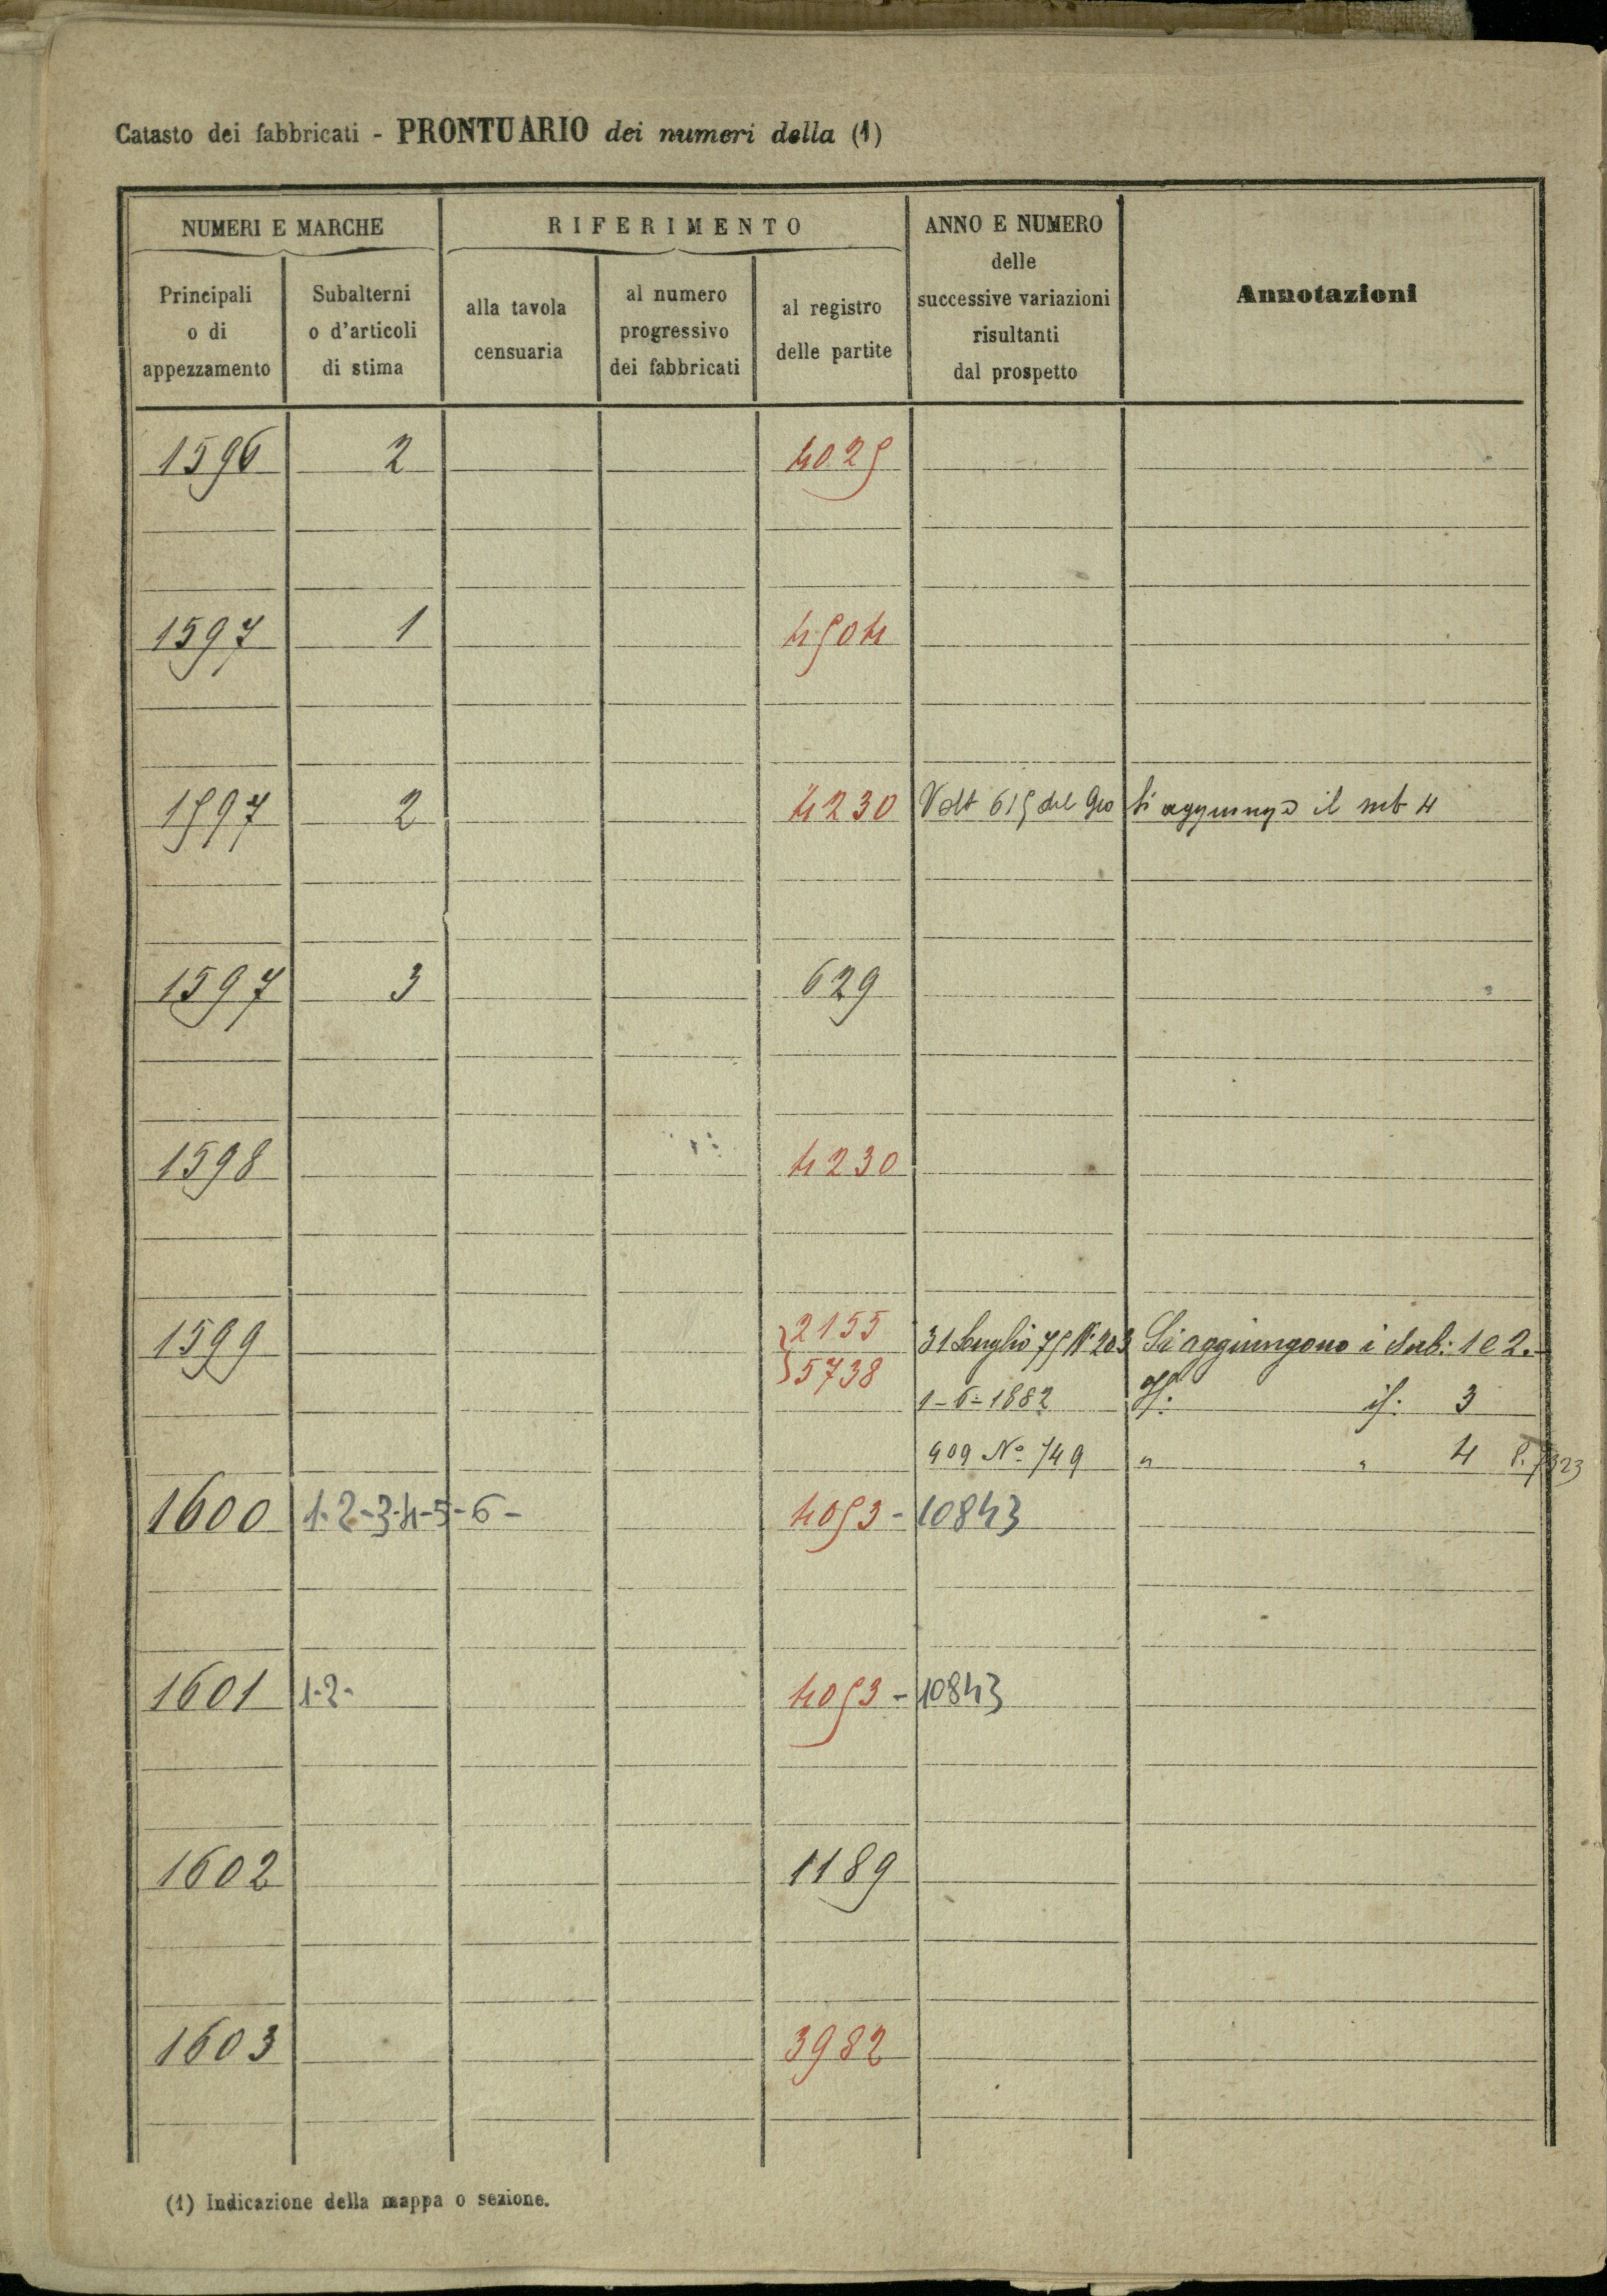 Catasto dei fabbricati - PRONTUARIO dei numeri della (1)
NUMERI E MARCHE
RIFERIMENTO
ANNO E NUMERO
delle
successive variazioni
risultanti
dal prospetto
Annotazioni
Principali
o di
appezzamento
Subalterni
o d'articoli
di stima
alla tavola
censuaria
al numero
progressivo
dei fabbricati
al registro
delle partite
1596 2 4025
1597 1 4504
1597 2 4230 Volt 615 del 910 Si aggiunge il sub 4
1597 3 629
1598 4230
1599 2155 31 Luglio 75 N° 203 Si aggiungono i Sub: 1 e 2.
5738 1-6-1882 If: if: 3
909 No 749 " " 4 P. 7323
1600 1-2-3-4-5-6- 4053 - 10843
1601 1-2- 4053 - 10843
1602 1189
1603 3982
(1) Indicazione della mappa o sezione.